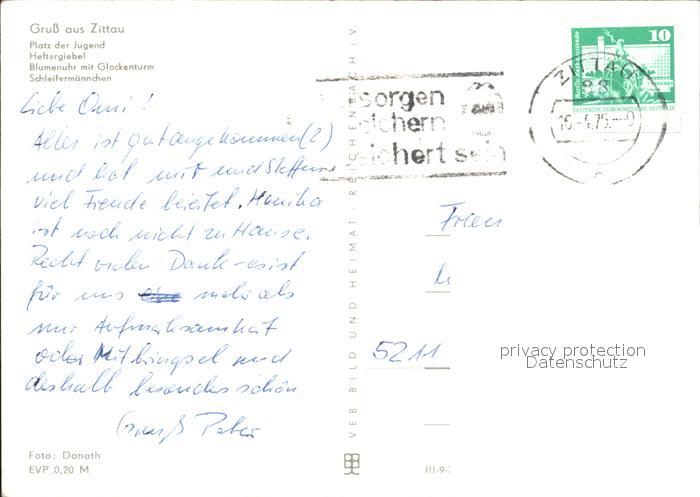 Gruß aus Zittau
Platz der Jugend
Heftergiebel
Blumenuhr mit Glockenturm
Schleifermännchen
Liebe Omi!
Alles ist gut angekommen (2)
und hat mir und Steffen
viel Freude bereitet. Monika
ist noch nicht zu Hause.
Recht vielen Dank – es ist
für uns mehr als
nur Aufmerksamkeit
oder Mitbringsel und
deshalb besonders schön.
Gruß Peter
Foto: Donath
EVP 0,20 M
VEB BILD UND HEIMAT REICHENBACH i.V
sorgen
sichern
sichert sein
10
DEUTSCHE DEMOKRATISCHE REPUBLIK
ZITTAU
88
16.-4.75.
Frau
5211
privacy protection
Datenschutz
III-9-